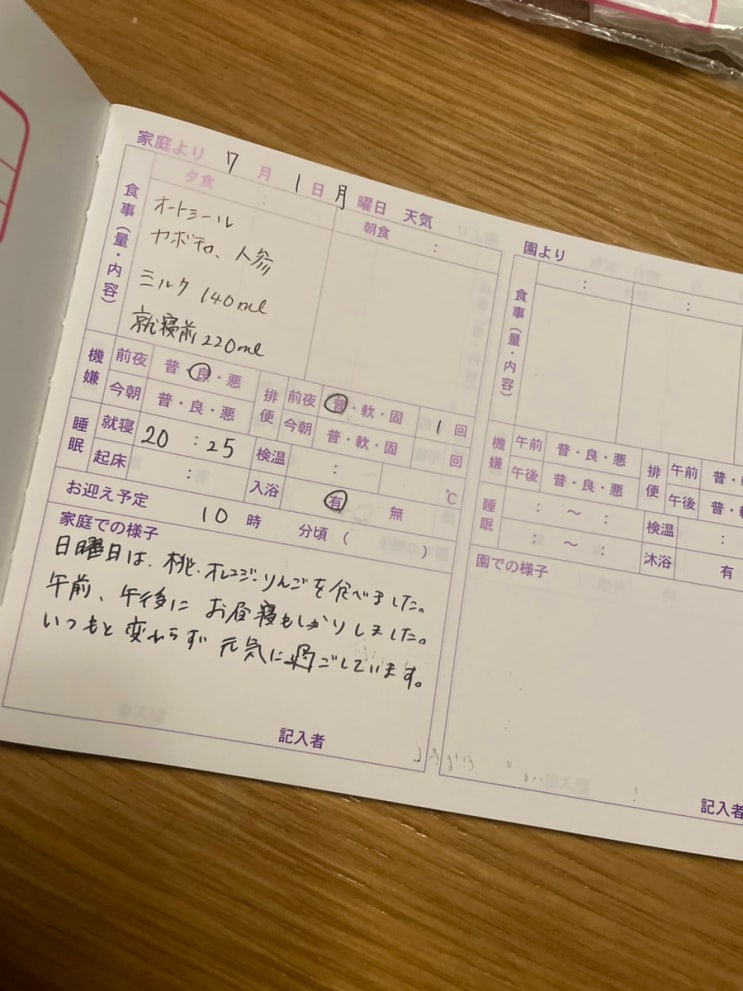 家庭より 7月 1日 月曜日 天気
夕食 :
朝食 :
食事(量・内容)
オートミール
カボチャ、人参
ミルク 140ml
就寝前 220ml
機嫌 前夜 普・良・悪 排便 前夜 普・軟・固 1回
今朝 普・良・悪 今朝 普・軟・固 回
睡眠 就寝 20:25 検温 : ℃
起床 : 入浴 有 無
お迎え予定 10時 分頃( )
家庭での様子
日曜日は、桃、オレンジ、りんごを食べました。
午前、午後に お昼寝もしっかりしました。
いつもと変わらず 元気に過ごしています。
記入者
園より
: :
食事(量・内容)
機嫌 午前 普・良・悪 排便 午前 普・
午後 普・良・悪 午後 普・
睡眠 : ~ : 検温 :
: ~ : 沐浴 有
園での様子
記入者